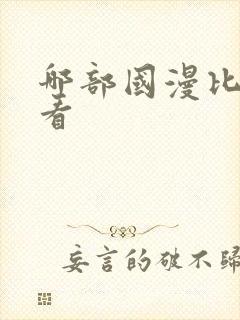 哪部國漫比
看
妄言的破不歸